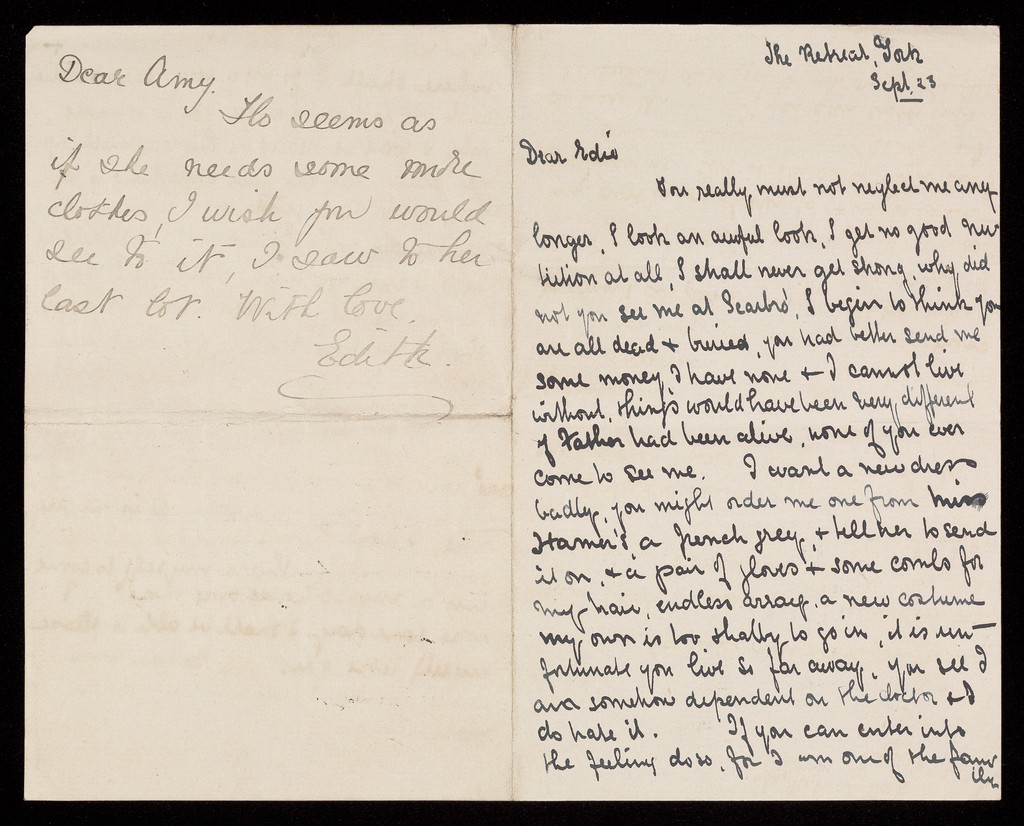 Dear Amy.
Flo seems as
if she needs some more
clothes, I wish you would
see to it, I saw to her
last lot. With love.
Edith.
The Retreat, York
Sept. 23
Dear Edie
You really must not neglect me any
longer, I look an awful look, I get no good nu-
tition at all, I shall never get strong, why did
not you see me at Scarbro', I begin to think you
are all dead & buried, you had better send me
some money, I have none & I cannot live
without, things would have been very different
if Father had been alive, none of you ever
come to see me. I want a new dress
badly, you might order me one from Miss
Hamer's a french grey, & tell her to send
it on, & a pair of gloves & some combs for
my hair, endless array, a new costume
my own is too shabby to go in, it is un-
fortunate you live so far away, you see I
am somehow dependent on the doctor & I
do hate it. If you can enter into
the feeling do so, for I am one of the fam
ily.